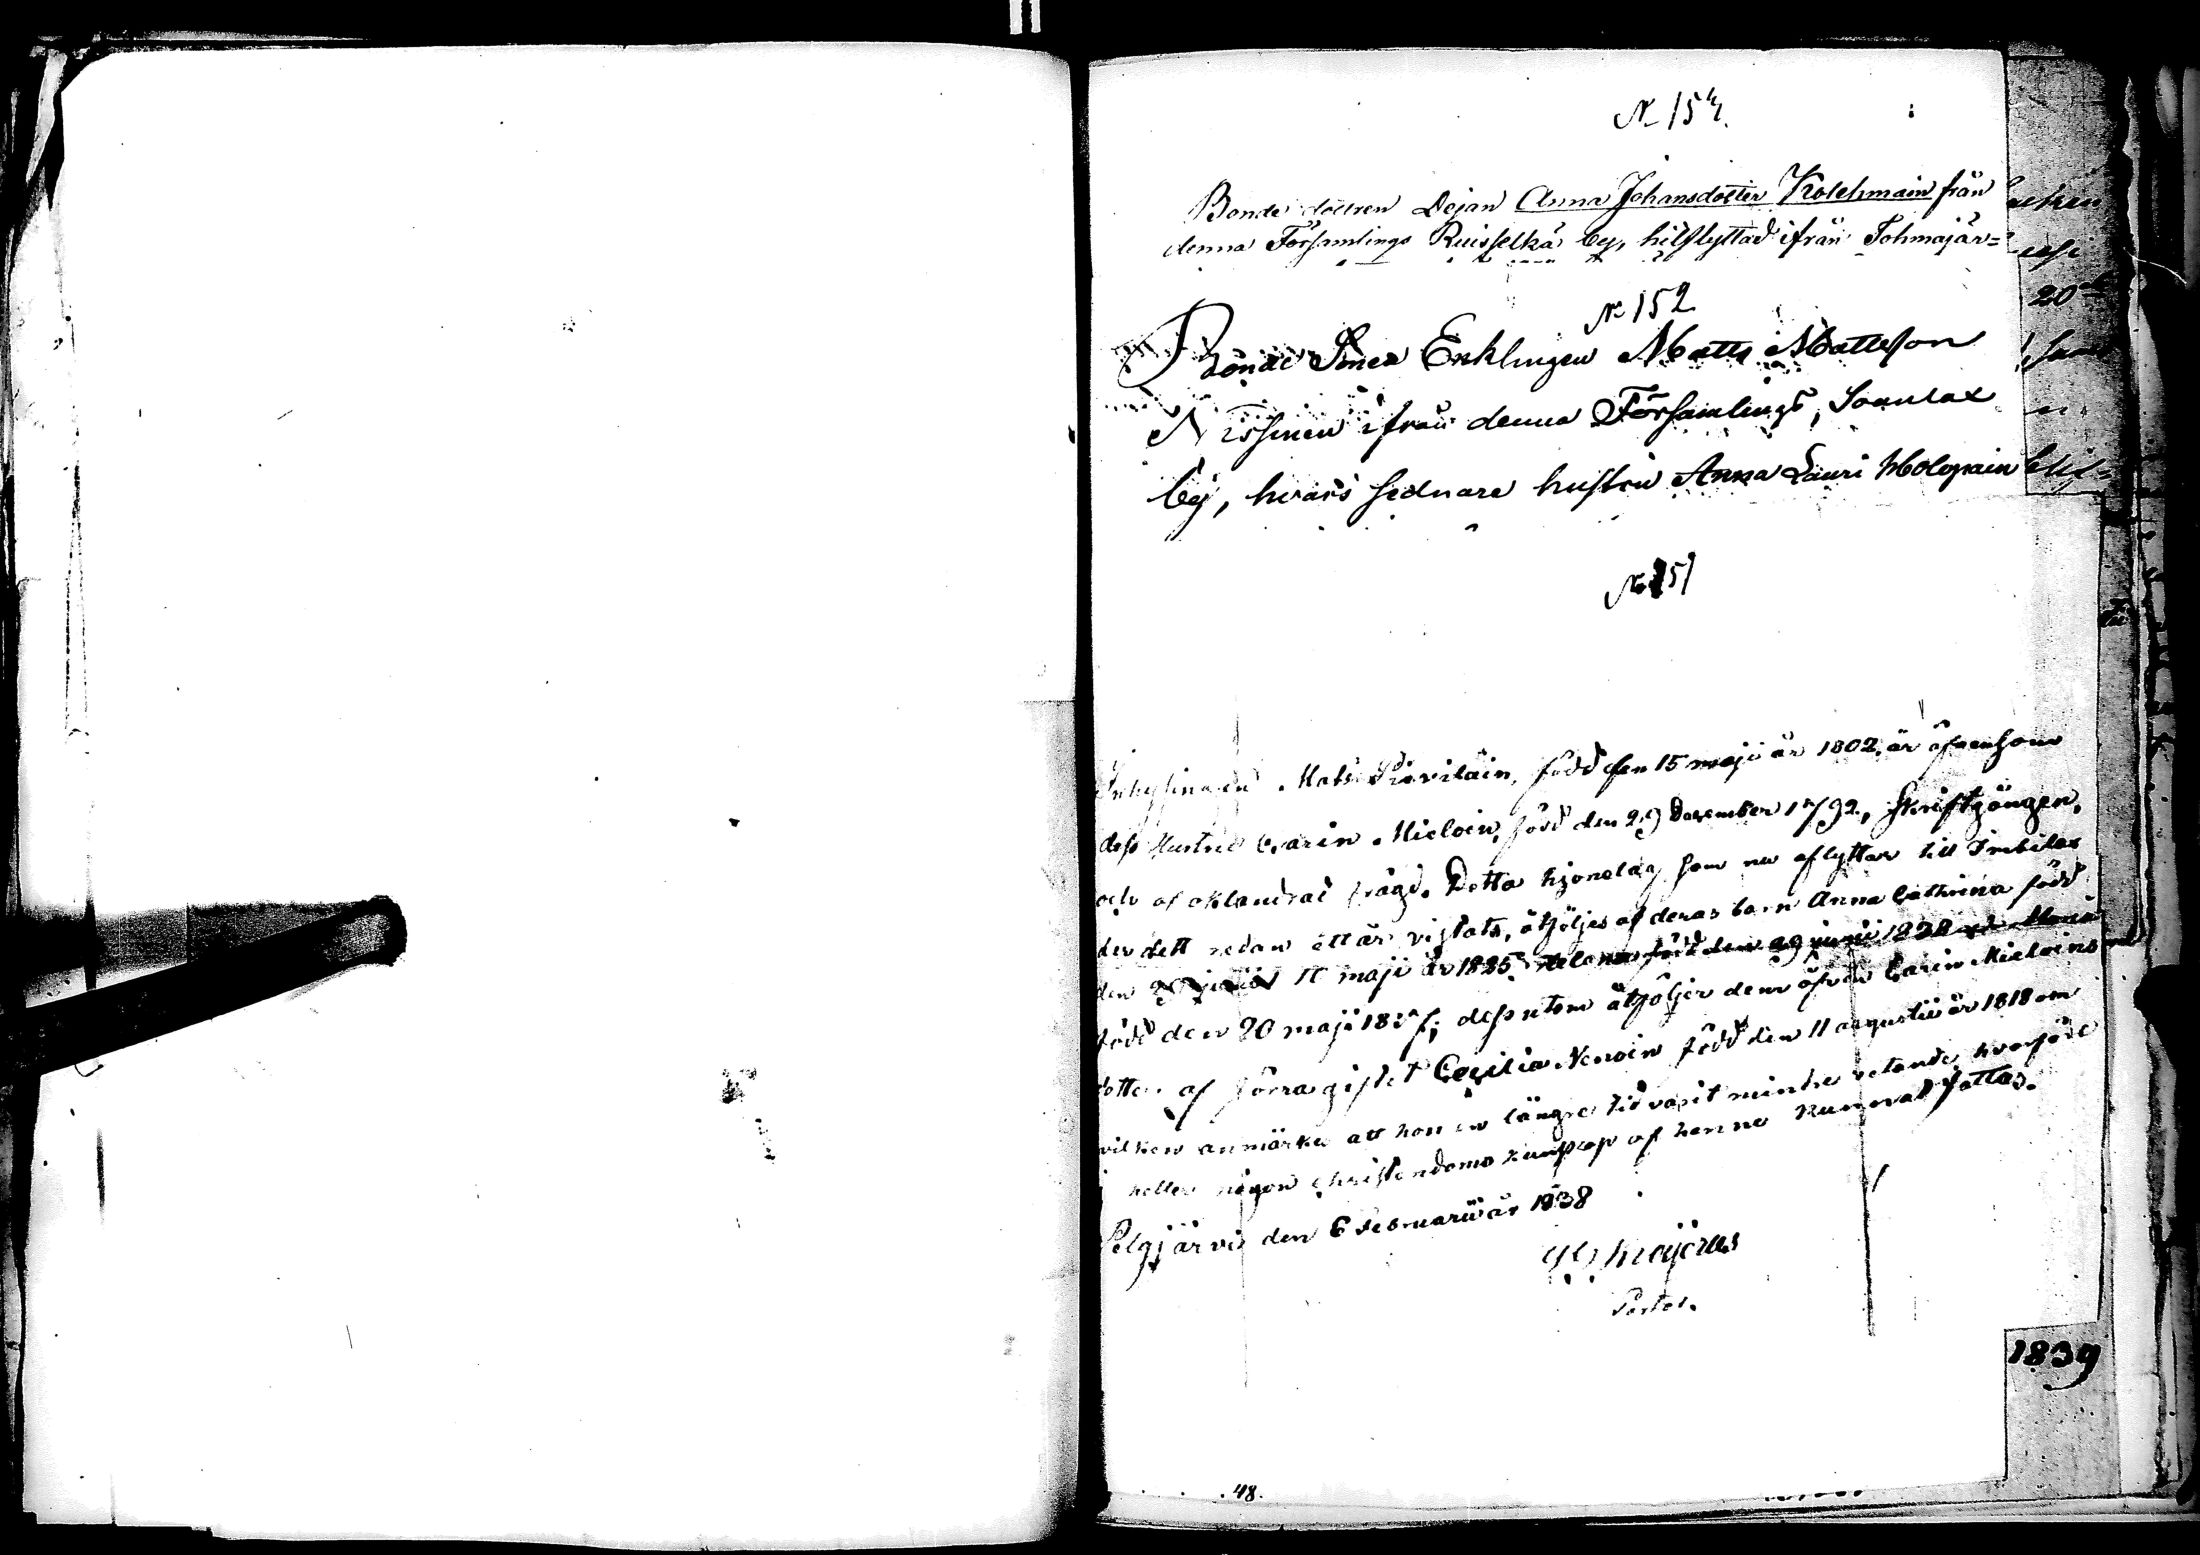 N 154.
Bonde dottren Pejan Anna Johansdotter Kolehmain från
denna Församlings Ruisselkä by, hitflyttad ifrån Tohmajär=
N 152
Bonde Sonen Enklingen Matts Mattsson
Nissinen ifrån denna Församlings, Soanlax
by, hvars sednare hustru Anna Lauri Holopain
N 151
Inhysingen Mats Kiviläin, född den 15 maji år 1802, är äfvensom
dess hustru Carin Mieloin, född den 29 December 1792, Skriftgången,
och af oklandrad frägd. Detta hjonelag som nu aflyttar till Imbilax
der dett redan ett år vistats, åtföljes af deras barn Anna Cathrina född
den 11 maji år 1825, Helena född den 29 junii 1828 och Maria
född den 20 maji 183; dessutom åtföljer dem öfven Carin Mieloins
dotter af förra giftet Cecilia Nenoin född den 11 augustii år 1818 om
vilken anmärkes att hon en längre tid varit mindre vetande hvarföre
ej heller någon christendoms kunskap af henne kunnat fattas.
Pelgjärvi den 6 Februarii år 1838
Pastor.
20
1839
48.